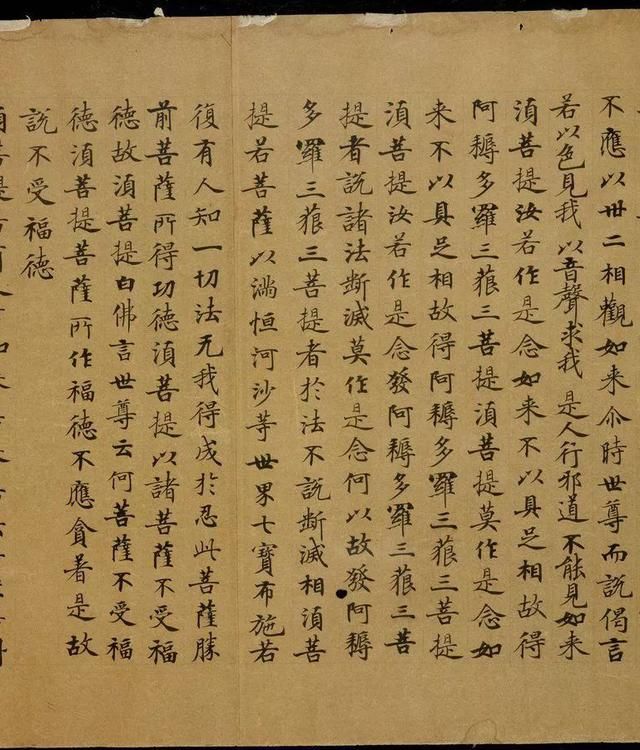 不應以卅二相觀如来尒時世尊而說偈言
若以色見我以音聲求我是人行邪道不能見如来
湏菩提汝若作是念如来不以具足相故得
阿耨多羅三藐三菩提湏菩提莫作是念如
来不以具足相故得阿耨多羅三藐三菩提
湏菩提汝若作是念發阿耨多羅三藐三菩
提者說諸法断滅莫作是念何以故發阿耨
多羅三藐三菩提者於法不說断滅相湏菩
提若菩薩以滿恒河沙等世界七寶布施若
復有人知一切法无我得成於忍此菩薩勝
前菩薩所得功德湏菩提以諸菩薩不受福
德故湏菩提白佛言世尊云何菩薩不受福
德湏菩提菩薩所作福德不應貪著是故
說不受福德